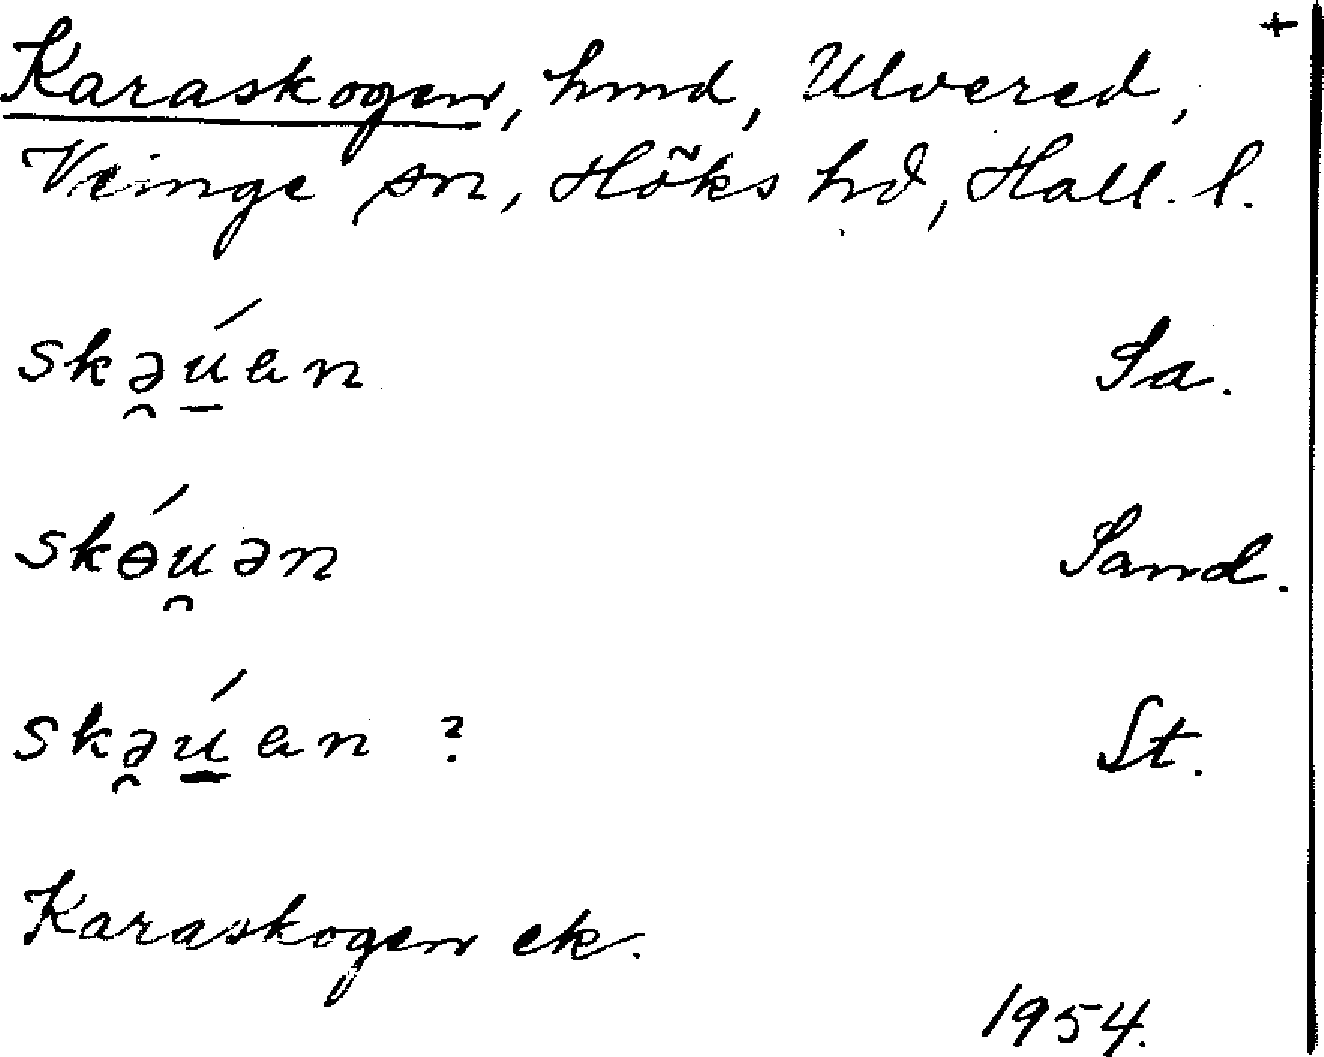 +
Karaskogen, hmd, Ulvered,
Veinge sn, Höks hd, Hall. l.
skə̯ú̱an Sa.
skɵ́u̯ən Sand.
skə̯ú̱an ? St.
Karaskogen ek.
1954.